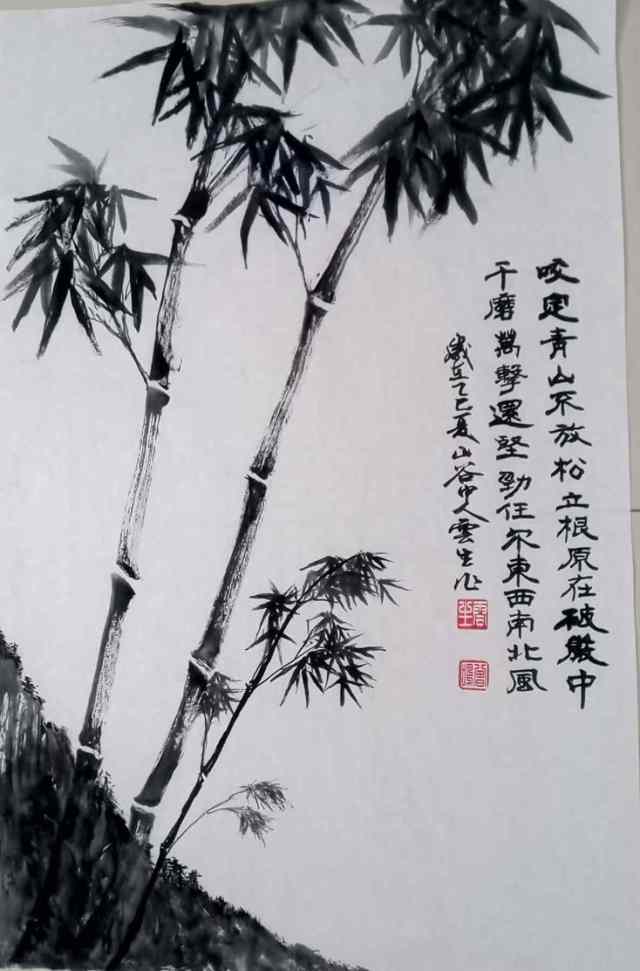 咬定青山不放松立根原在破嚴中
千磨萬擊還堅勁任尔東西南北風
歲在乙巳夏山谷中人雲生作
雲生